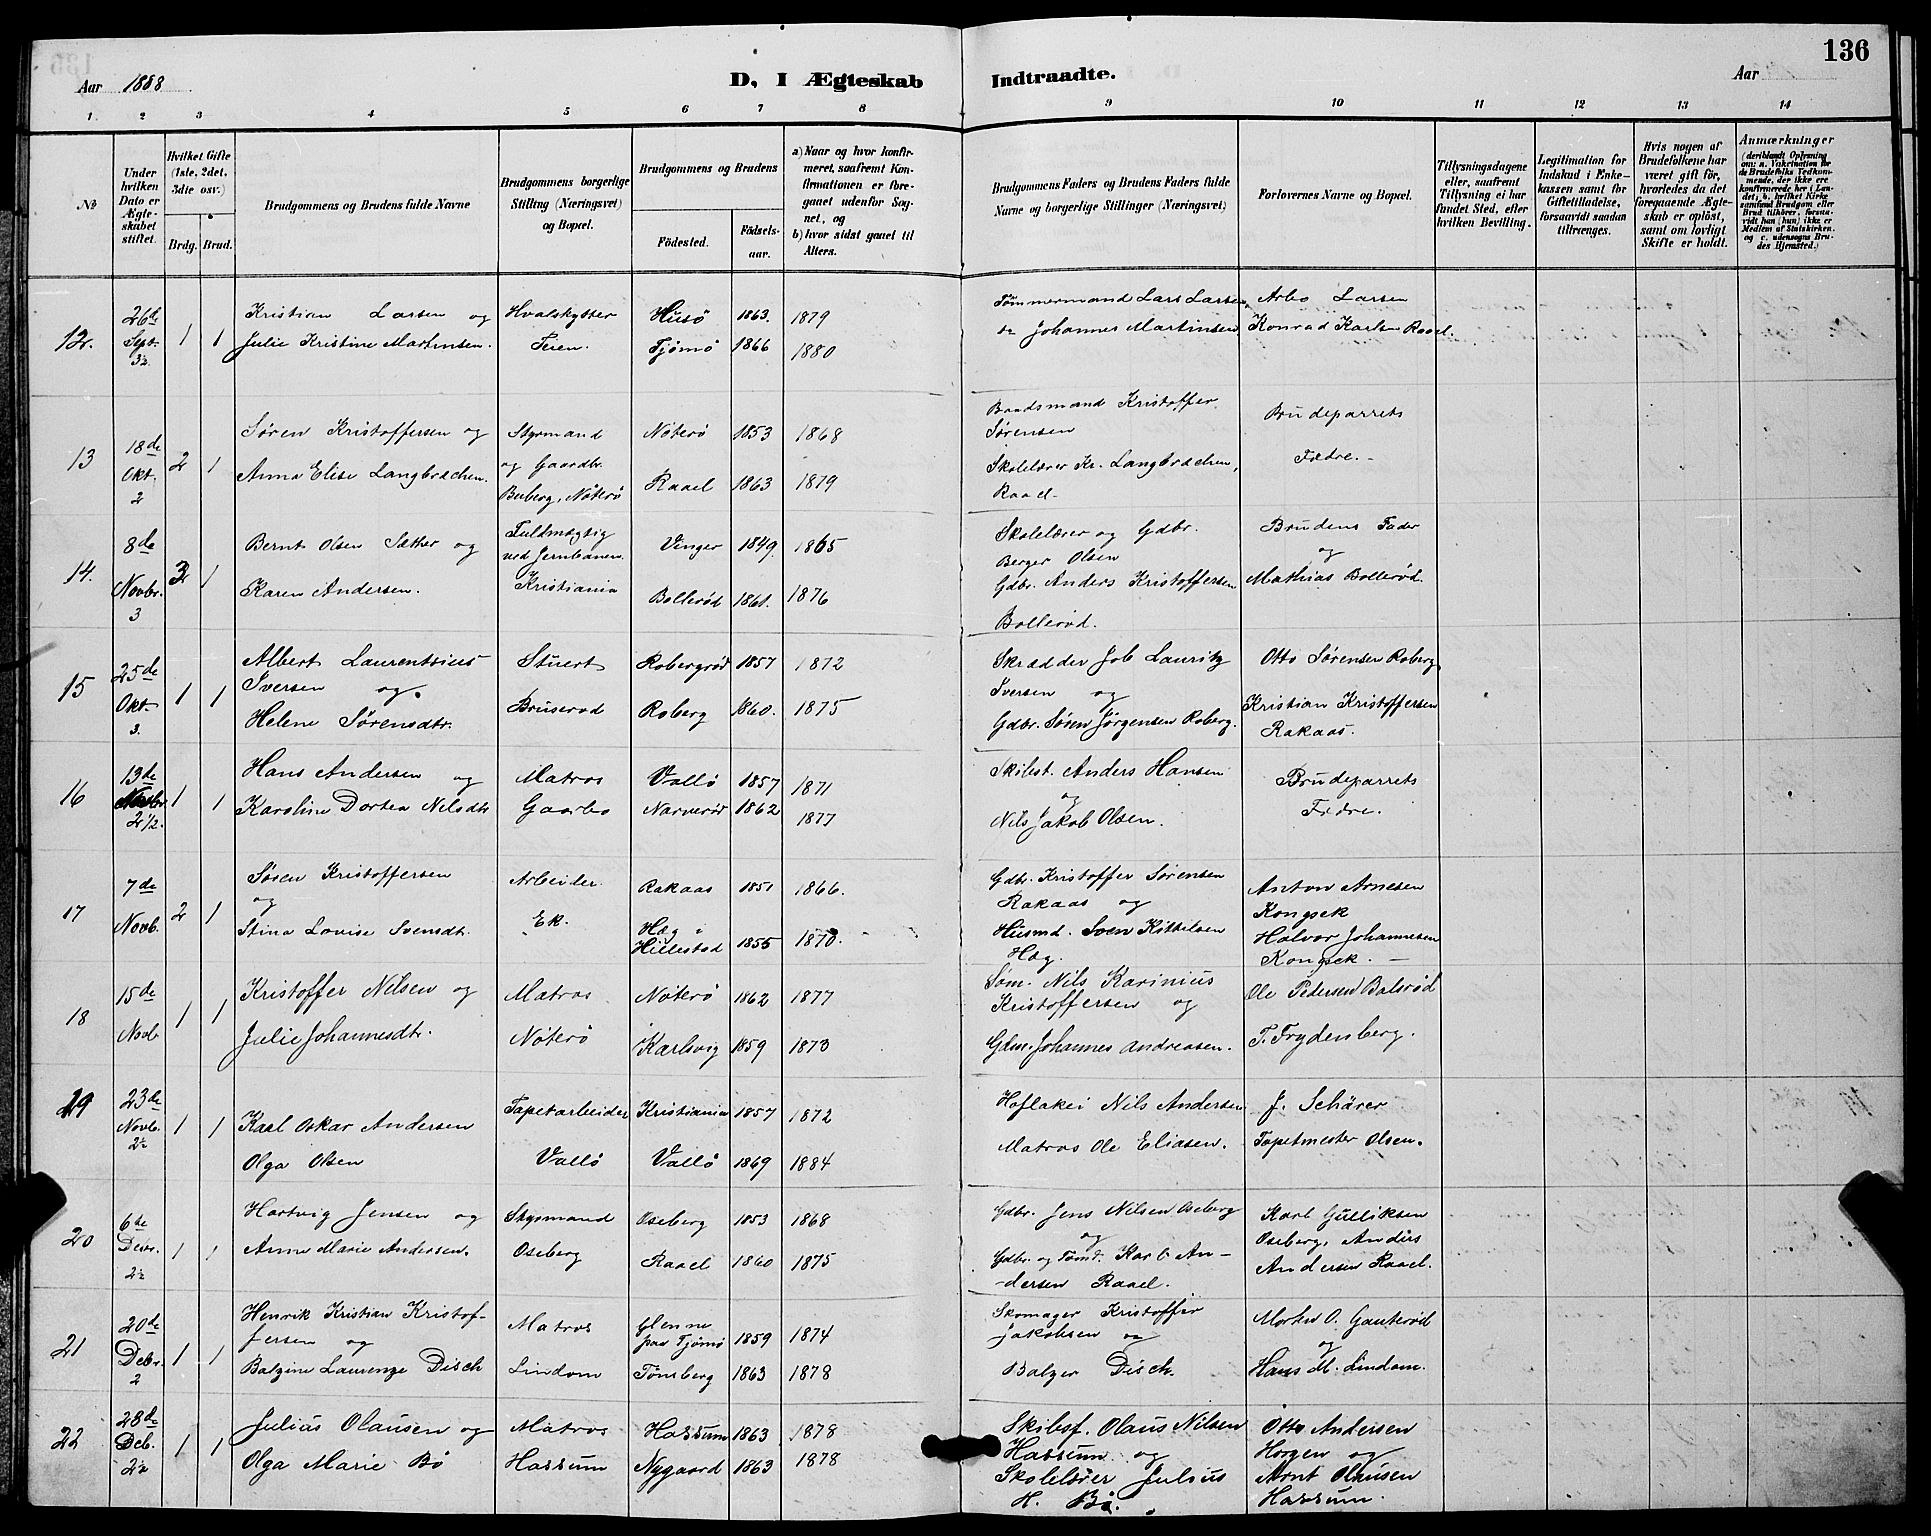 136
Aar 1888
D, I Ægteskab Indtraadte.
Aar
1 2 3 4 5 6 7 8 9 10 11 12 13 14
No
Under hvilken Dato er Ægteskabet stiftet.
Hvilket Gifte (1ste, 2det, 3die osv.)
Brdg. Brud.
Brudgommens og Brudens fulde Navne
Brudgommens borgerlige Stilling (Næringsvei) og Bopæl.
Brudgommens og Brudens
Fødested. Fødselsaar.
a) Naar og hvor konfirmeret, saafremt Konfirmationen er foregaaet udenfor Sognet, og
b) hvor sidst gaaet til Alters.
Brudgommens Faders og Brudens Faders fulde Navne og borgerlige Stillinger (Næringsvei)
Forlovernes Navne og Bopæl.
Tillysningsdagene eller, saafremt Tillysning ei har fundet Sted, efter hvilken Bevilling.
Legitimation for Indskud i Enkekassen samt for Giftetilladelse, forsaavidt saadan tiltrænges.
Hvis nogen af Brudefolkene har været gift før, hvorledes da det foregaaende Ægteskab er opløst, samt om lovligt Skifte er holdt.
Anmærkninger
(deriblandt Oplysning om: a. Vakcination for de Brudefolks Vedkommende, der ikke ere konfirmerede her i Landet; b. hvilket Kirkesamfund Brudgom eller Brud tilhører, forsaavidt han (hun) ikke er Medlem af Statskirken, og c. udensogns Brudes Hjemsted.)
12. 26de Sept. 3½ 1 1
Kristian Larsen og
Julie Kristine Martinsen.
Hvalskytter
Teien.
Husö 1863. 1879
Tjømø 1866 1880
Tømmermand Lars Larsen
do Johannes Martinsen
Arbo Larsen
Konrad Karlsen Raael.
13 18de Okt. 2 2 1
Søren Kristoffersen og
Anna Elise Langbrachen.
Styrmand
og Gaardbr.
Buberg, Nöterö
Nöterö 1853 1868
Raael 1863 1879
Baadsmand Kristoffer
Sørensen
Skolelærer Kr. Langbrachen,
Raael
Brudeparrets
Fædre.
14. 8de Novbr. 3 3 1
Bernt Olsen Sæther og
Karen Andersen.
Fuldmægtig
ved Jernbanen.
Kristiania
Vinger 1849. 1865
Bollerød 1861. 1876
Skolelærer og Gdbr.
Berger Olsen
Gdbr. Anders Kristoffersen
Bollerød.
Brudens Fader
og
Mathias Bollerød.
15 25de Okt. 3. 1 1
Albert Laurentsius
Iversen og
Helene Sørensdtr.
Stuert
Bruserød
Robergrød 1857 1872
Roberg 1860. 1875
Skrædder Job Lauritz
Iversen og
Gdbr. Søren Jørgensen Roberg.
Otto Sørensen Roberg,
Kristian Kristoffersen
Rakaas.
16 13de Novbr. 2½. 1 1
Hans Andersen og
Karoline Dortea Nilsdtr
Matros
Gaarbo
Vallø 1857 1871
Narverød 1862 1877
Skibst. Anders Hansen
og
Nils Jakob Olsen.
Brudeparrets
Fædre.
17 7de Novb. 2 1
Søren Kristoffersen
og
Stina Lovise Svensdt.
Arbeider
Ek.
Rakaas 1851 1866.
Hæg i
Hillestad 1855 1870.
Gdbr. Kristoffer Sørensen
Rakaas og
Husmd. Sven Kittilsen
Hæg.
Anton Arnesen
Kongsek
Halvor Johannesen
Kongsek.
18 15de Novb 1 1
Kristoffer Nilsen og
Julie Johannesdtr.
Matros
Nöterö
Nöterö 1862 1877
Karlsvig 1859 1873
Søm. Nils Karinius
Kristoffersen og
Johannes Andreasen.
Ole Pedersen Balsrød
T. Frydenberg.
19 23de Novb. 2½ 1 1
Karl Oskar Andersen
Olga Olsen
Tapetarbeider
Vallö
Kristiania 1857 1872
Vallö 1869 1884
Hoflakei Nils Andersen
Matros Ole Eliasen.
J. Schärer
Tapetmester Olsen.
20 6te Debr. 2½ 1 1
Hartvig Jensen og
Anne Marie Andersen.
Styrmand
Oseberg
Oseberg 1853 1868
Raael 1860 1875
Gdbr. Jens Nilsen Oseberg
og
Gdbr. og Tømd. Karl An-
-dersen Raael.
Karl Gulliksen
Oseberg, Anders
Andersen Raael.
21 20de Debr. 2 1 1
Henrik Kristian Kristof-
fersen og
Balzine Laurenze Disch
Matros
Lindom
Glenne
paa Tjømø 1859 1874
Tønsberg 1863 1878
Skomager Kristoffer
Jakobsen og
Balzer Disch.
Morten O. Gauterød
og
Hans M. Lindom.
22 28de Deb. 2½ 1 1
Julius Olausen og
Olga Marie Bö
Matros
Hassum
Hassum 1863 1878
Nygaard 1863 1878
Skibsf. Olaus Nilsen
Hassum og
Skolelærer Julius
H. Bö.
Otto Andersen
Horgen og
Arnt Olausen
Hassum.